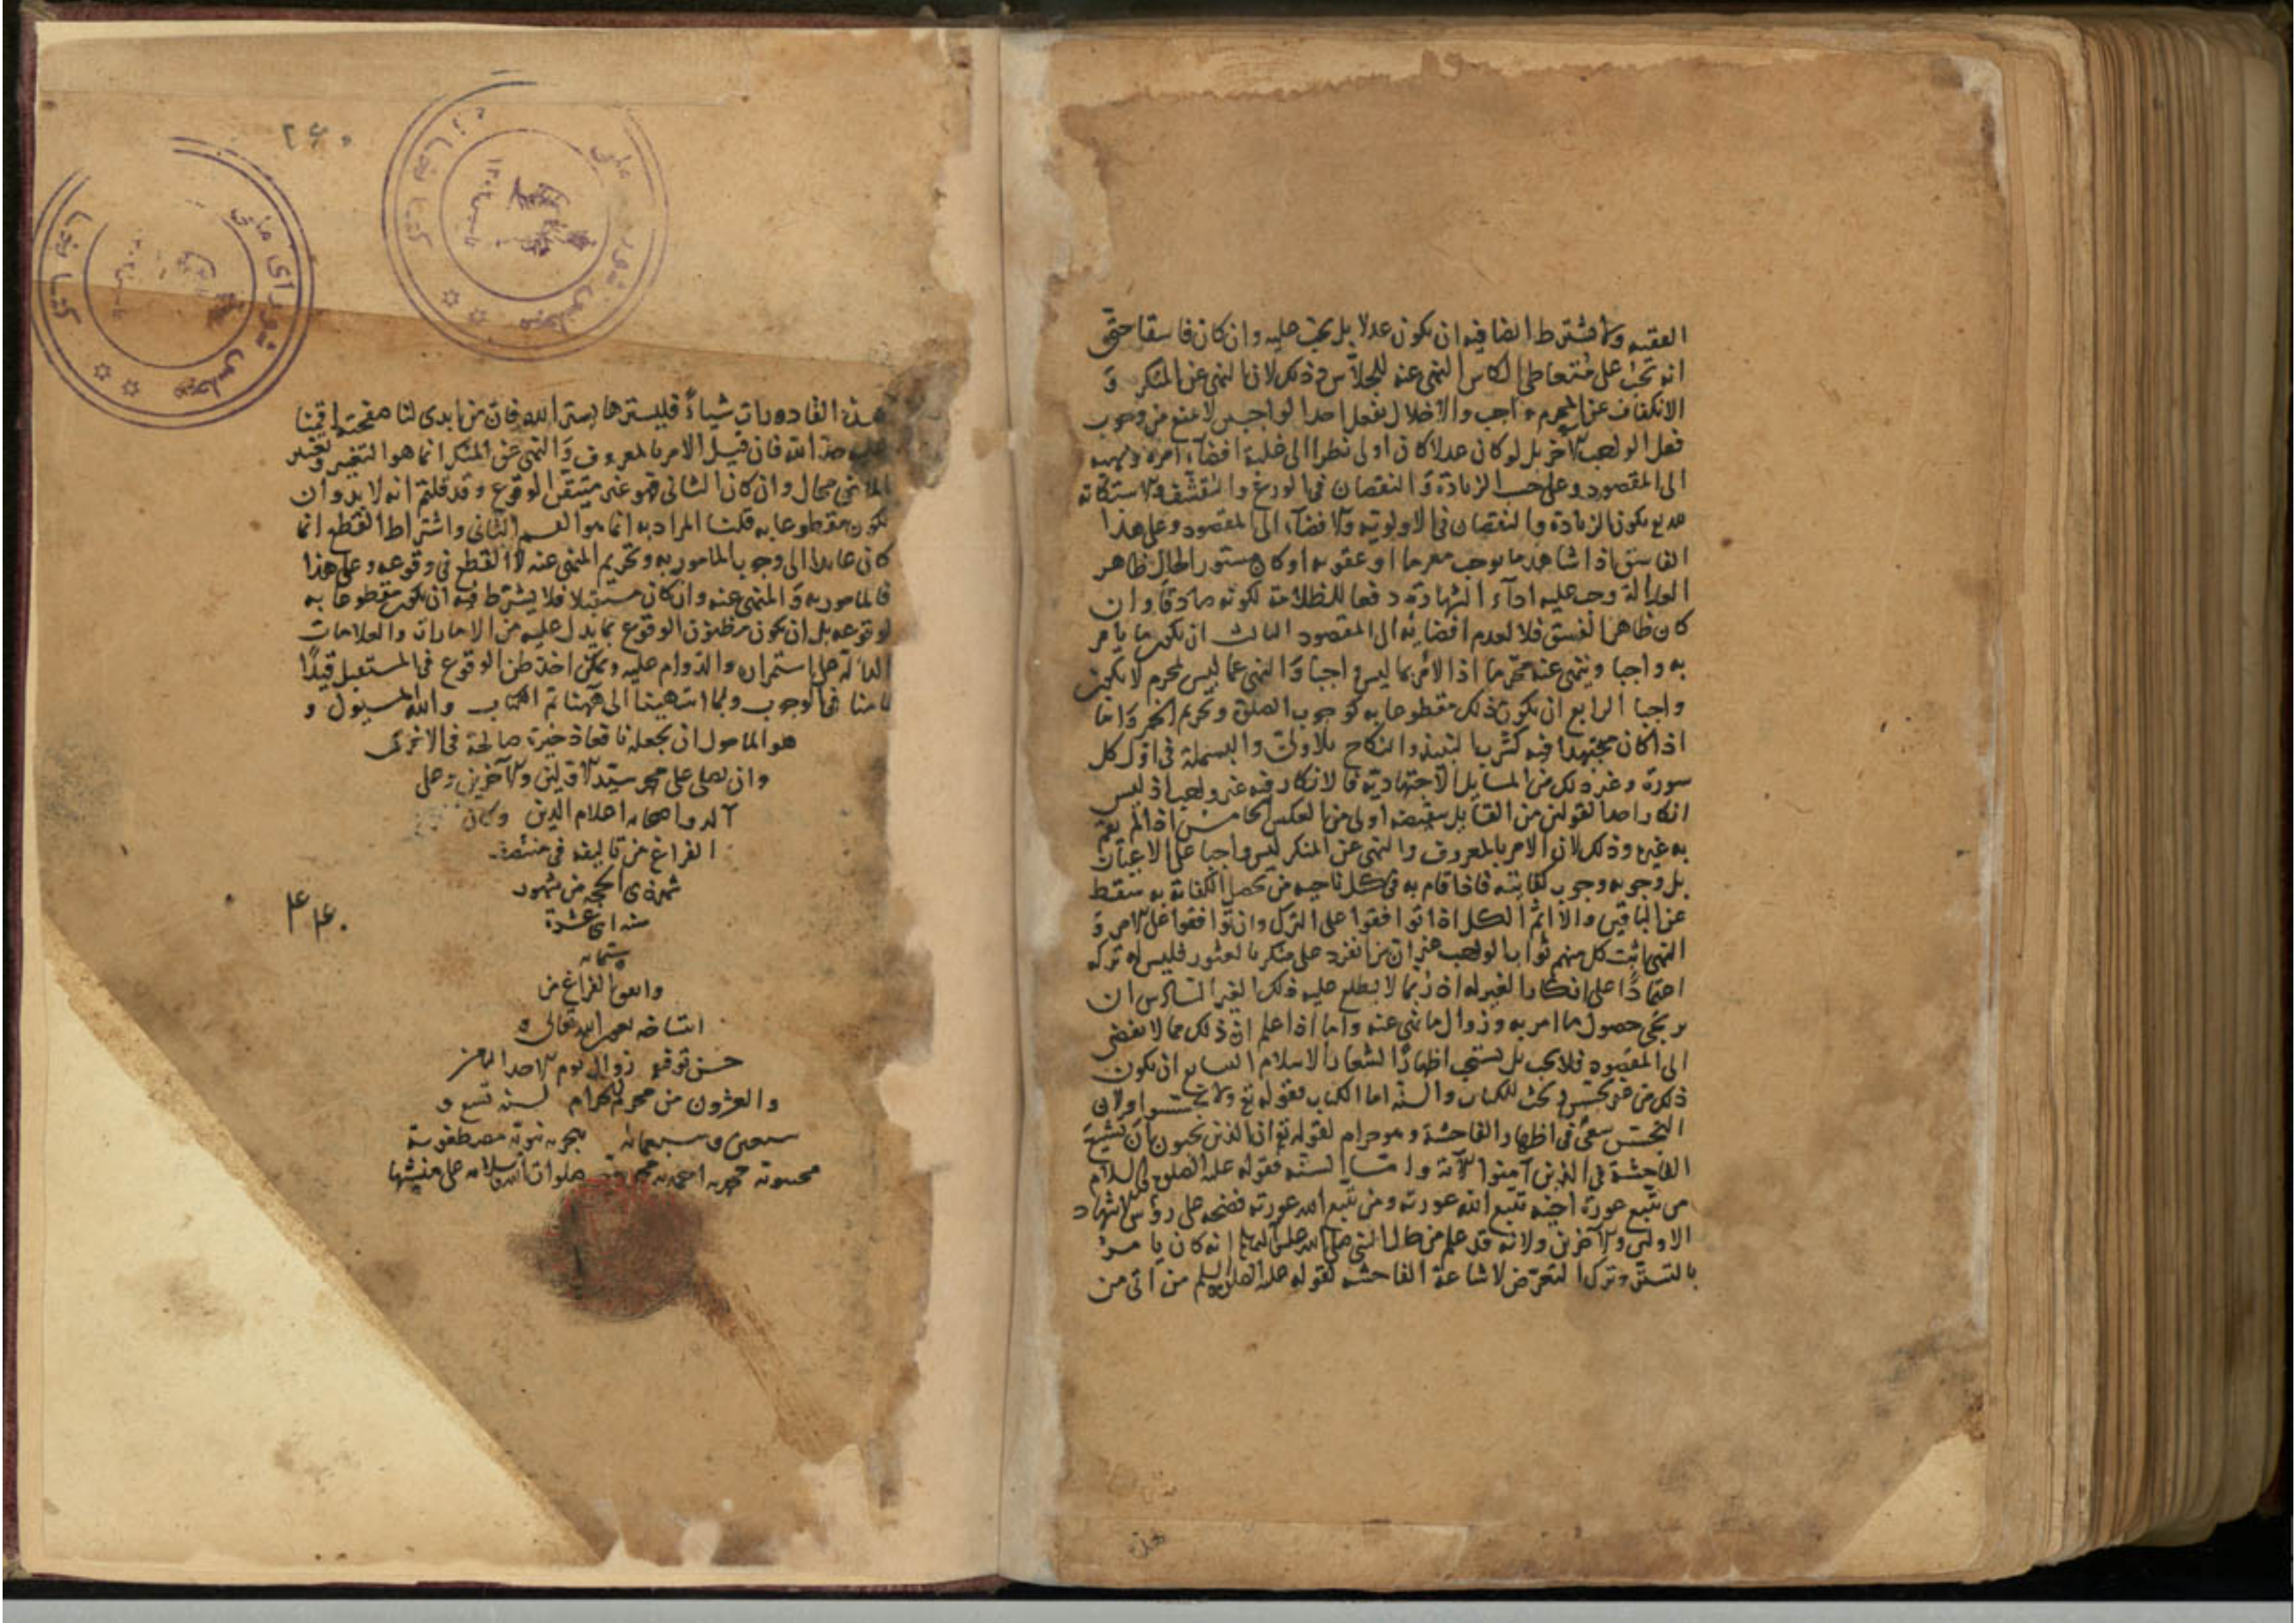 العقيه ولا يشترط ايضا فيه ان يكون عدلا بل يجب عليه وان كان فاسقا حتى
انه يجب على متعاطي الكاس النهى عنه للجلاس وذلك لان النهى عن المنكر و
الانكفاف عن المحرم واجب والاخلال بفعل احد الواجبين لا يمنع من وجوب
فعل الواجب الآخر بل لو كان عدلا كان اولى نظرا الى غلبة افضاء امره ونهيه
الى المقصود وعلى حسب الزيادة والنقصان في الورع والتقشف والاستكانة
يكون الزيادة والنقصان في الاولوية والافضاء الى المقصود وعلى هذا
الفاسق اذا شاهد ما يوجب مغرما او عقوبة او كان مستور الحال ظاهر
العدالة وجب عليه اداء الشهادة دفعا للظلامة لكونه صادقا وان
كان ظاهر الفسق فلا لعدم افضائه الى المقصود الثالث ان يكون ما يامر
به واجبا وينهى عنه محرما اذ الامر بما ليس واجبا والنهى عما ليس بمحرم لا يكون
واجبا الرابع ان يكون ذلك مقطوعا به كوجوب الصلوة وتحريم الخمر واما
اذا كان مجتهدا فيه كشرب النبيذ والنكاح بلا ولى والبسملة في اول كل
سورة وغير ذلك من المسايل الاجتهادية فالانكار فيه غير واجب اذ ليس
انكار احد القولين من القايل بنقيضه اولى من العكس الخامس اذا لم يقم
به غيره وذلك لان الامر بالمعروف والنهى عن المنكر ليس واجبا على الاعيان
بل وجوبه وجوب كفاية فاذا قام به في كل ناحية من تحصل الكفاية به سقط
عن الباقين والا اثم الكل اذا توافقوا على الترك وان توافقوا على الامر و
النهى اثيب كل منهم ثواب الواجب غير ان من انفرد على منكر بالعثور فليس له تركه
اعتمادا على انكار الغير له اذ ربما لا يطلع عليه ذلك الغير السادس ان
يرتجى حصول ما امر به وزوال ما نهى عنه واما اذا علم ان ذلك مما لا يفضى
الى المقصود فلا يجب بل يستحب اظهارا لشعار الاسلام السابع ان يكون
ذلك من غير تجسس وبحث للكتاب والسنة اما الكتاب فقوله تع ولا تجسسوا ولان
التجسس سعى في اظهار الفاحشة وهو حرام لقوله تع ان الذين يحبون ان تشيع
الفاحشة في الذين آمنوا الآية واما السنة فقوله عليه الصلوة والسلام
من تتبع عورة اخيه تتبع الله عورته ومن تتبع الله عورته فضحه على رؤس الاشهاد
الاولين والآخرين ولانه قد علم من حال النبي صلى الله عليه وسلم انه كان يامر
بالتستر وترك التعرض لاشاعة الفاحشة لقوله عليه السلم من اتى من
٢٤٠
كتابخانه مجلس شورای ملی
كتابخانه مجلس شورای ملی
هذه القاذورات شياء فليسترها بستر الله فان من ابدى لنا صفحته اقمنا
عليه حد الله فان قيل الامر بالمعروف والنهى عن المنكر انما هو التغيير وتغيير
الماضي محال وان كان الثاني فهو غير متيقن الوقوع وقد قلتم انه لا بد وان
يكون مقطوعا به قلنا المراد به انما هو القسم الثاني واشتراط القطع انما
كان عايدا الى وجوب المامور به وتحريم المنهى عنه لا القطع في وقوعه وعلى هذا
فالمامور به والمنهى عنه وان كان مستقبلا فلا يشترط فيه ان يكون مقطوعا به
لوقوعه بل ان يكون مظنون الوقوع بما يدل عليه من الامارات والعلامات
الدالة على استمراره والدوام عليه ويمكن اخذ ظن الوقوع في المستقبل قيدا
ثامنا في الوجوب ولما انتهينا الى ههنا تم الكتاب والله المسئول و
هو المامول ان يجعله نافعا ذخيرة صالحة في الاخرى
وان يصلى على محمد سيد الاولين والآخرين وعلى
آله واصحابه اعلام الدين وكان
الفراغ من تاليفه في منتصف
شهر ذى الحجة من شهور
سنه اثنى عشرة
ستمايه
واتفق الفراغ من
انتساخه بعون الله تعالى و
حسن توفيقه زوال يوم الاحد الثامن
والعشرون من محرم الحرام لسنه تسع و
سبعين وسبعمائه هجرية نبوية مصطفوية
٤٤٠